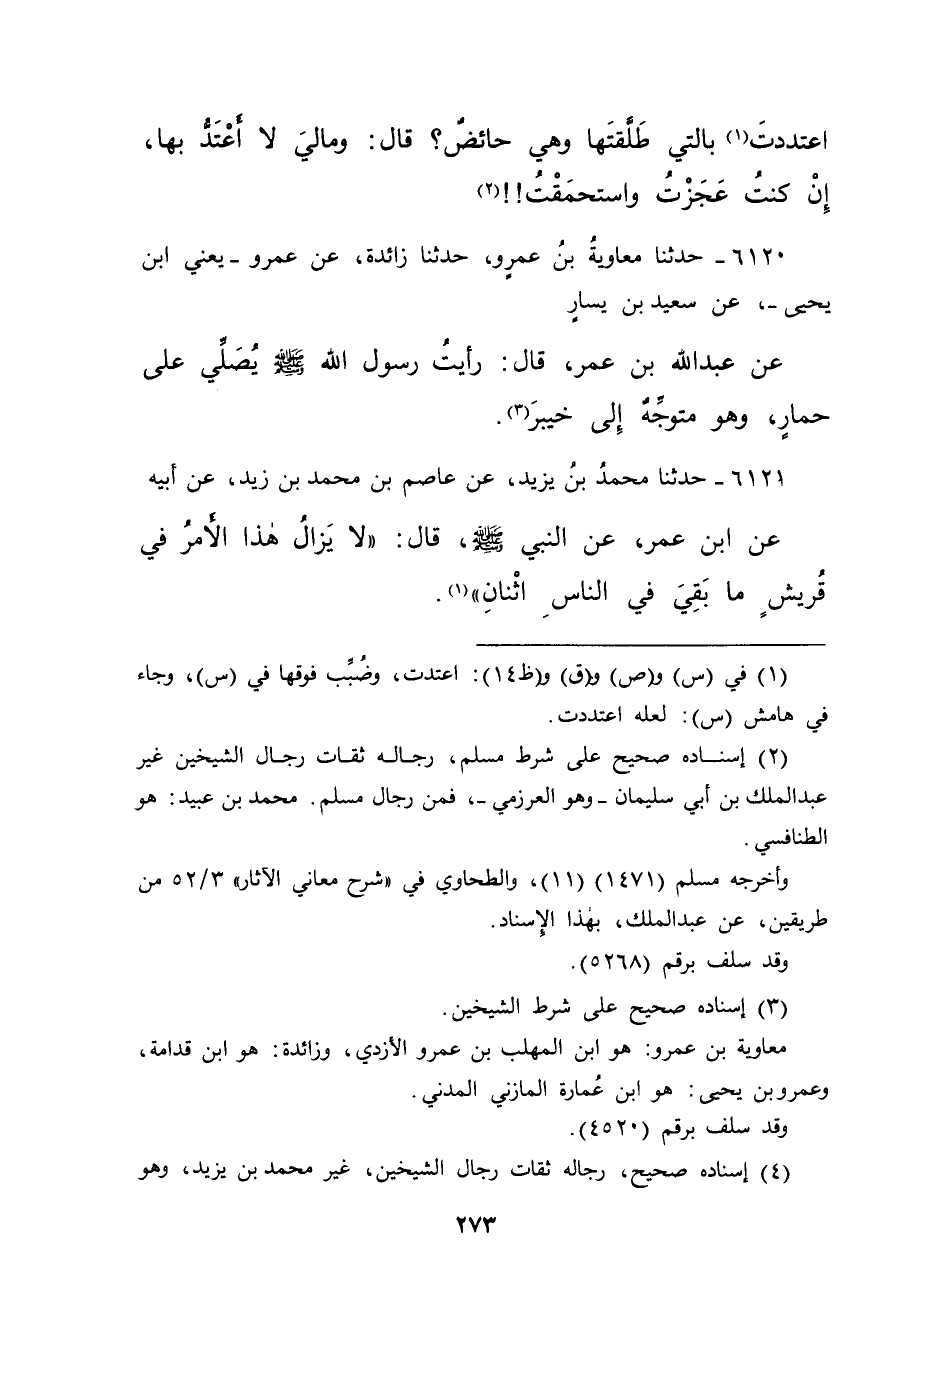 اعتددتَ(١) بالتي طَلَّقتَها وهي حائضٌ؟ قال: وماليَ لا أَعْتَدُّ بها،
إِنْ كنتُ عَجَزْتُ واستحمَقْتُ!!(٢)
٦١٢٠ ـ حدثنا معاويةُ بنُ عمرٍو، حدثنا زائدة، عن عمرو ـ يعني ابن
يحيى ـ، عن سعيد بن يسارٍ
عن عبدالله بن عمر، قال: رأيتُ رسول الله ﷺ يُصَلِّي على
حمارٍ، وهو متوجِّهٌ إِلى خيبرَ(٣).
٦١٢١ ـ حدثنا محمدُ بنُ يزيد، عن عاصم بن محمد بن زيد، عن أبيه
عن ابن عمر، عن النبي ﷺ، قال: «لا يَزالُ هٰذا الأَمرُ في
قُريشٍ ما بَقِيَ في الناسِ اثْنانِ»(١).
(١) في (س) و(ص) و(ق) و(ظ١٤): اعتدت، وضُبِّب فوقها في (س)، وجاء
في هامش (س): لعله اعتددت.
(٢) إسناده صحيح على شرط مسلم، رجاله ثقات رجال الشيخين غير
عبدالملك بن أبي سليمان ـ وهو العرزمي ـ، فمن رجال مسلم. محمد بن عبيد: هو
الطنافسي.
وأخرجه مسلم (١٤٧١) (١١)، والطحاوي في «شرح معاني الآثار» ٥٢/٣ من
طريقين، عن عبدالملك، بهٰذا الإِسناد.
وقد سلف برقم (٥٢٦٨).
(٣) إسناده صحيح على شرط الشيخين.
معاوية بن عمرو: هو ابن المهلب بن عمرو الأزدي، وزائدة: هو ابن قدامة،
وعمرو بن يحيى: هو ابن عُمارة المازني المدني.
وقد سلف برقم (٤٥٢٠).
(٤) إسناده صحيح، رجاله ثقات رجال الشيخين، غير محمد بن يزيد، وهو
٢٧٣